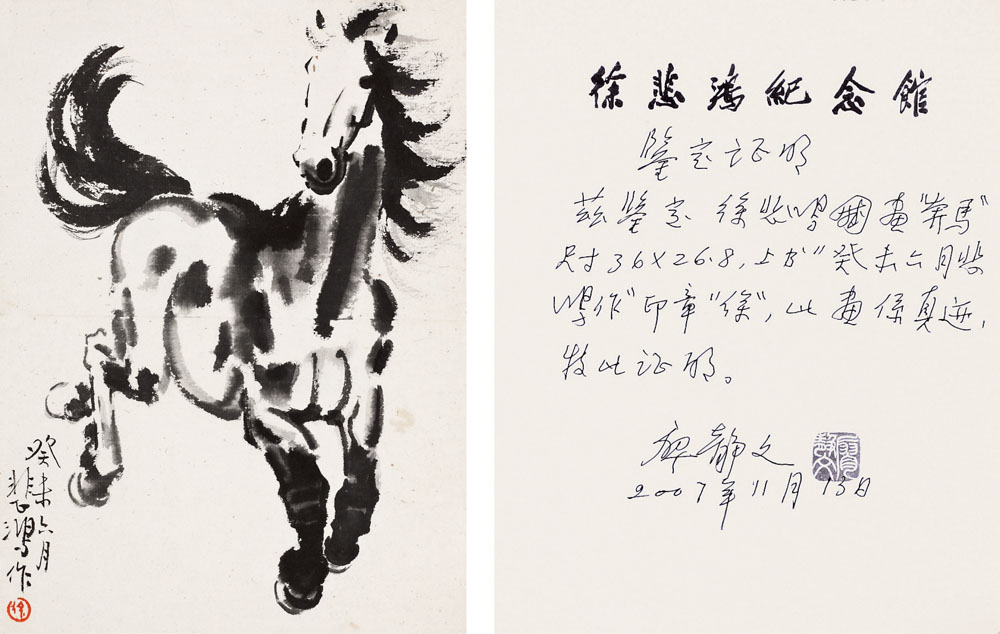 癸未六月
悲鸿作
徐
徐悲鴻紀念館
鑒定证明
茲鑒定徐悲鸿國畫"奔馬"
尺寸36×26.8,上书"癸未六月悲
鸿作"印章"徐",此畫係真迹,
特此证明。
廖静文
2007年11月13日